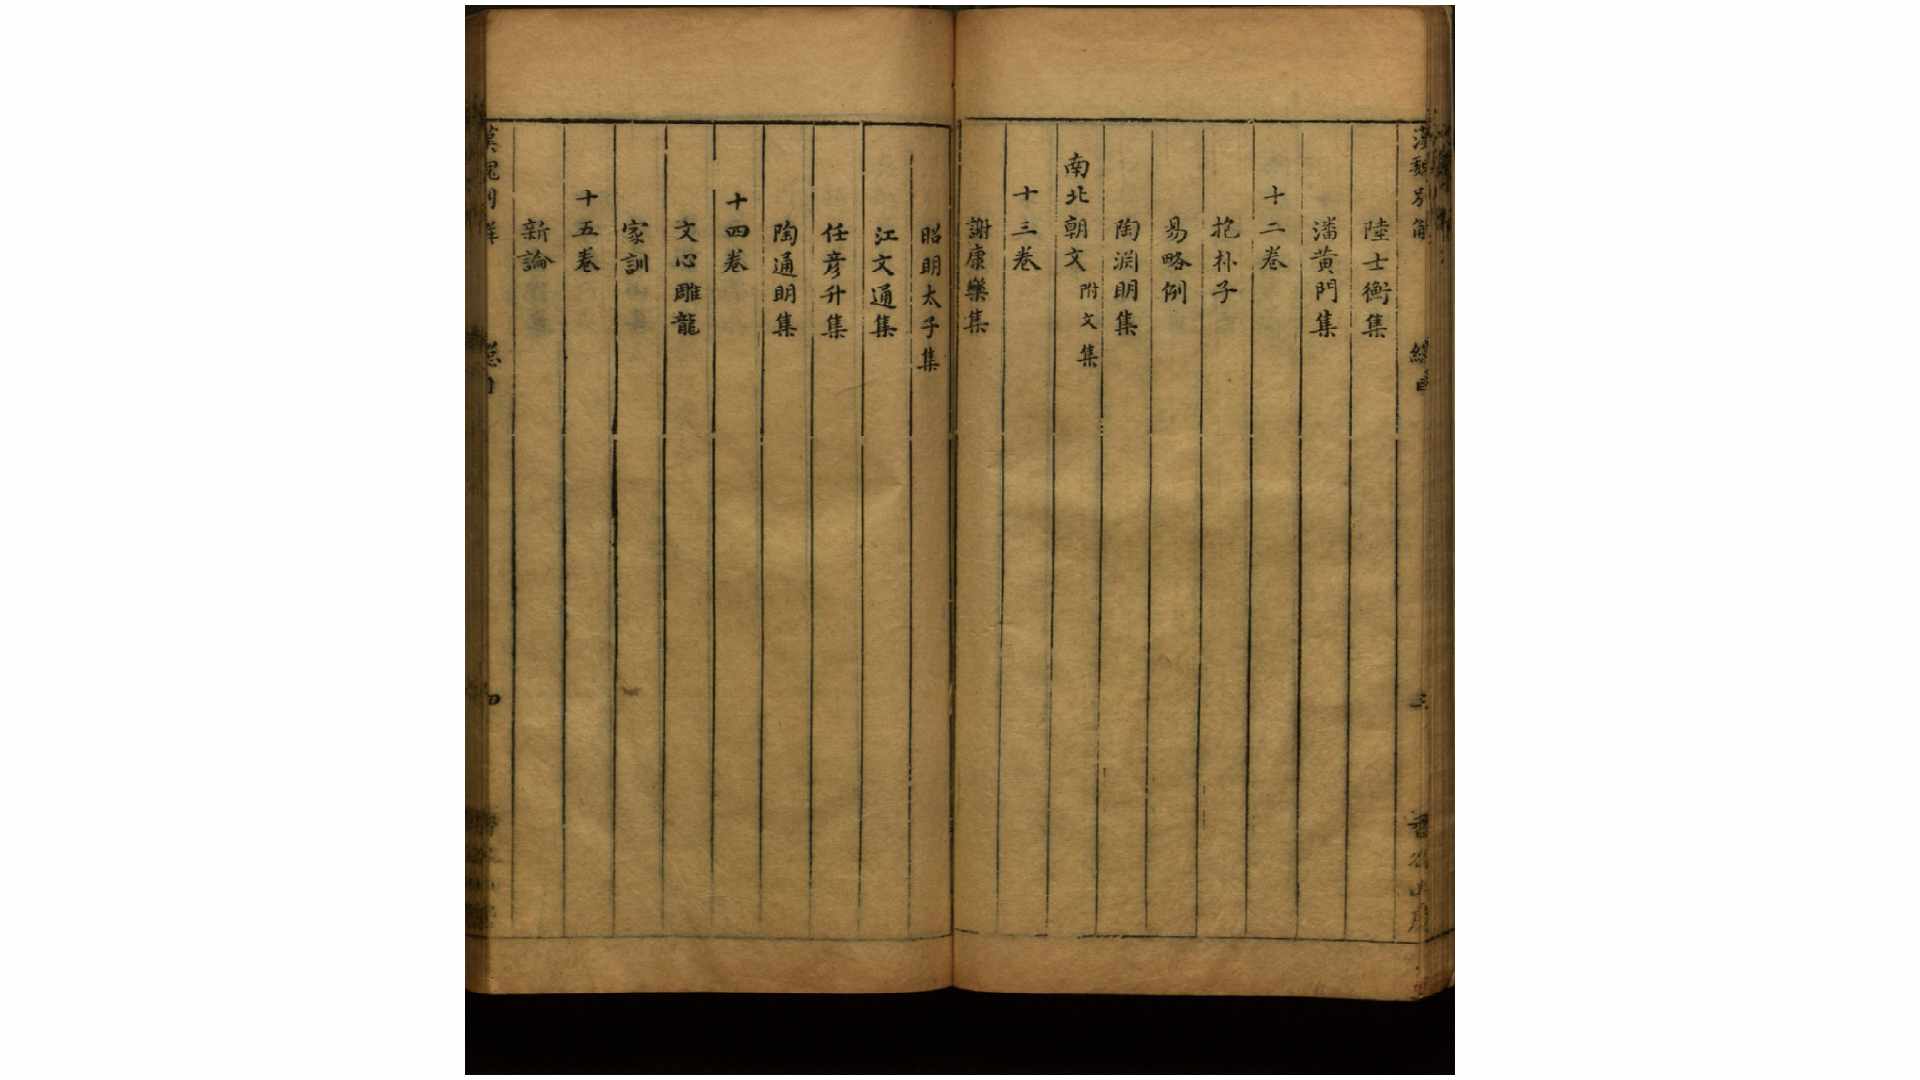 漢魏別解
總目
三
香谷山房
陸士衡集
潘黃門集
十二卷
抱朴子
易略例
陶淵明集
南北朝文附文集
十三卷
謝康樂集
昭明太子集
江文通集
任彥升集
陶通明集
十四卷
文心雕龍
家訓
十五卷
新論
漢魏別解
總目
四